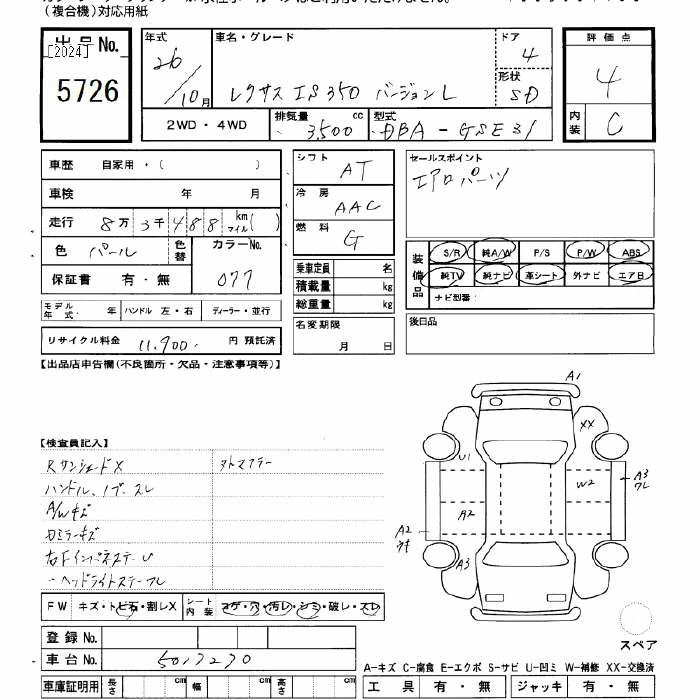 （複合機）対応用紙
出品No.
[2024]
5726
年式 26/10月
車名・グレード レクサス IS350 バージョンL
ドア 4
形状 SD
2WD・4WD
排気量 3,500 cc
型式 DBA-GSE31
評価点
4
内装 C
車歴 自家用・( )
車検 年 月
走行 8万3千488 km マイル( )
色 パール 色替 カラーNo. 077
保証書 有・無
モデル年式: 年 ハンドル 左・右 ディーラー・並行
リサイクル料金 11,900 円 預託済
シフト AT
冷房 AAC
燃料 G
乗車定員 名
積載量 kg
総重量 kg
名変期限
月 日
セールスポイント
エアロパーツ
装備品 S/R 純A/W P/S P/W ABS
純TV 純ナビ 革シート 外ナビ エアB
ナビ型番：
後日品
【出品店申告欄（不良箇所・欠品・注意事項等）】
【検査員記入】
RサンシェードX
ハンドル、ノブ、スレ
A/Wキズ
ヘッドライトステ
FW キズ・トビ石・割レX シート内装 コゲ・穴・汚レ・シミ・破レ・スレ
登録No.
車台No. 5017270
車庫証明用 長さ cm 幅 cm 高さ cm
A1
XX
U1
W2
A3
ワレ
A2
A2
A3
スペア
A―キズ C―腐食 E―エクボ S―サビ U―凹ミ W―補修 XX―交換済
工具 有・無 ジャッキ 有・無